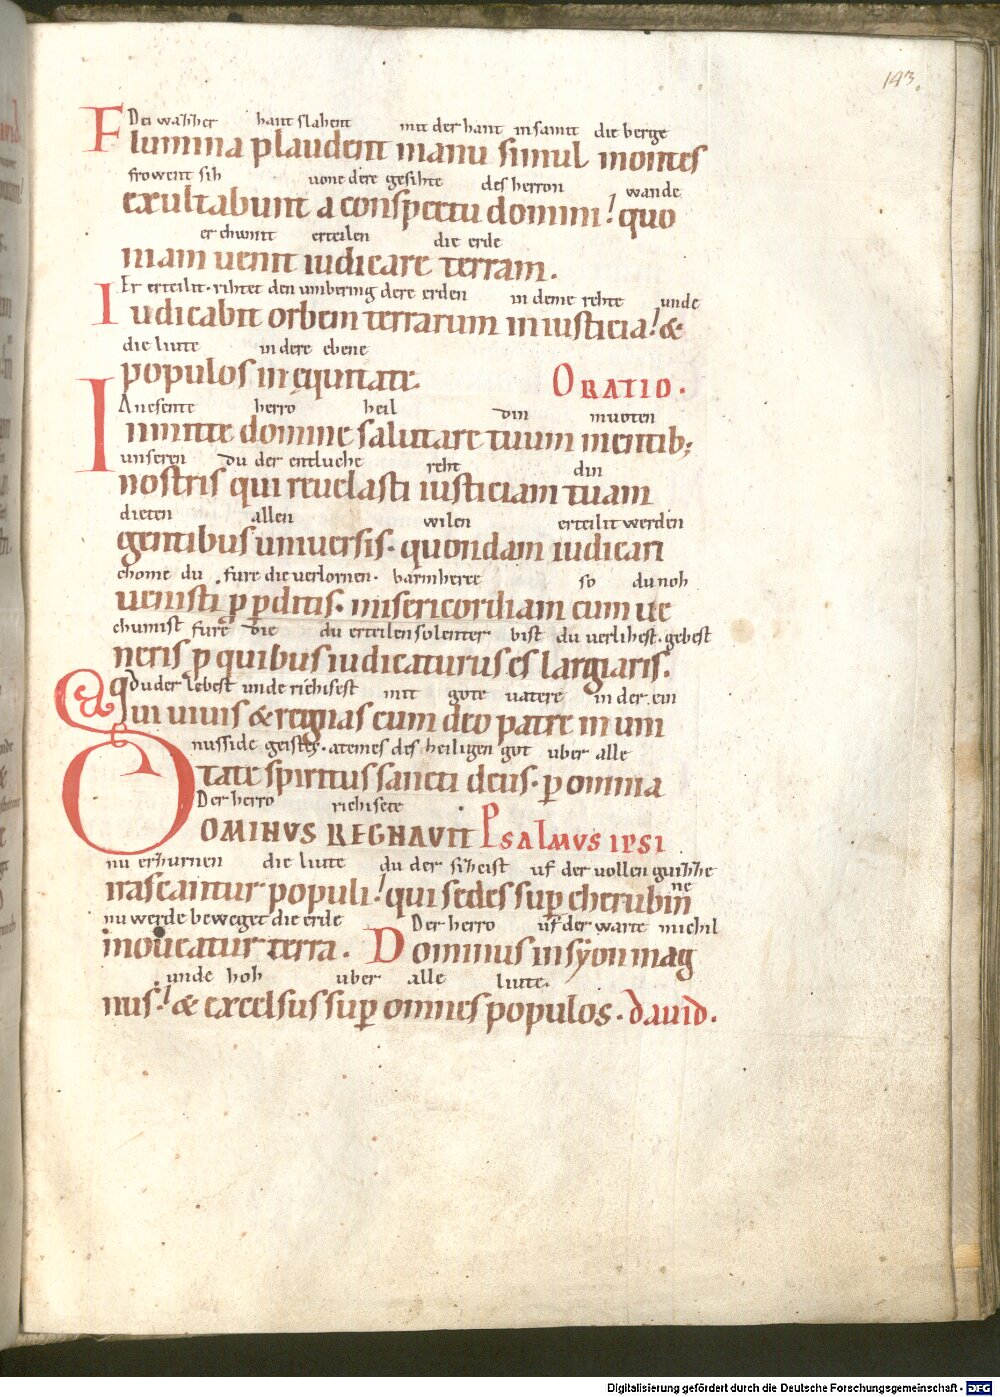 143.
Dei wazzer hant slahent mit der hant insamt die berge
Flumina plaudent manu simul montes
frowent sih uone dere gesihte des herron wande
exultabunt a conspectu domini! quo
er chumit erteilen die erde
niam uenit iudicare terram.
Er erteilit. rihtet den umbering dere erden in deme rehte unde
Iudicabit orbem terrarum in iusticia! &
die liute in dere ebene
populos in ęquitate. ORATIO.
Anesente herro heil din muoten
Inmitte domine salutare tuum mentib;
unseren du der entluche reht din
nostris qui reuelasti iusticiam tuam
dieten allen wilen erteilit werden
gentibus uniuersis. quondam iudicari
chome du fure die uerlornen. barmherce so du noh
uenisti p pditis. misericordiam cum ue
chumist fure die du erteilen solenter bist du uerlihest. gebest
neris p quibus iudicaturus es largiaris.
du der lebest unde richisest mit gote uatere in der ein
Qui uiuis & regnas cum deo patre in uni
nusside geistes. atemes des heiligen got uber alle
tate spiritus sancti deus. p omnia
Der herro richisete
DOMINVS REGNAVIT PSALMVS IPSI
nu erzurnen die liute du der sizzest uf der uollen guizzhe
irascantur populi! qui sedes sup cherubin
ne
nu werde beweget die erde Der herro uf der warte michil
moueatur terra. Dominus in syon mag
unde hoh uber alle liute.
nus! & excelsus sup omnes populos. dauid.
Digitalisierung gefördert durch die Deutsche Forschungsgemeinschaft - DFG